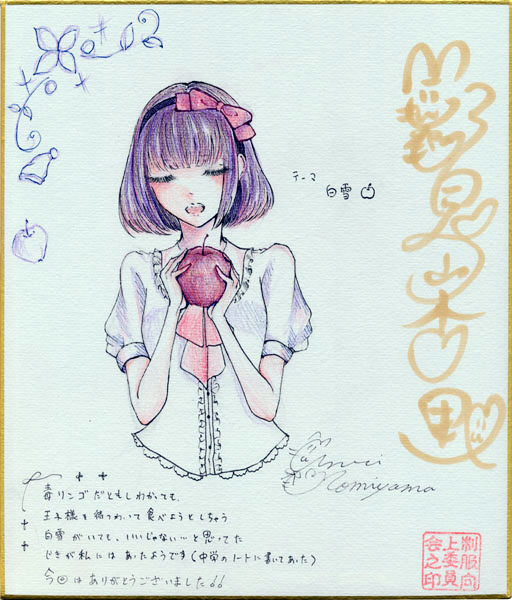 テーマ
白雪
Nomiyama
毒リンゴだともしわかっても、
王子様を待つわって食べようとしちゃう
白雪がいても、いいじゃない…と思ってた
ときが私にはあったようです(中学のノートに書いてあった)
今回はありがとうございました!!
制服向
上委員
会之印